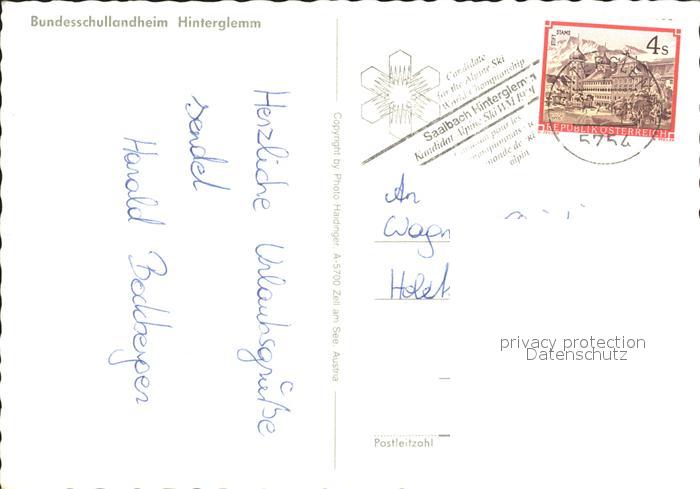 Bundesschullandheim Hinterglemm
Herzliche Urlaubsgrüße
sendet
Harald
Copyright by Photo Haidinger, A-5700 Zell am See, Austria
Candidate
for the Alpine Ski
World Championship
Saalbach Hinterglemm
Kandidat Alpine Ski WM 1991
monde de
alpin
STIFT STAMS
4 S
REPUBLIK ÖSTERREICH
5754
An
Wagn
Holst
privacy protection
Datenschutz
Postleitzahl